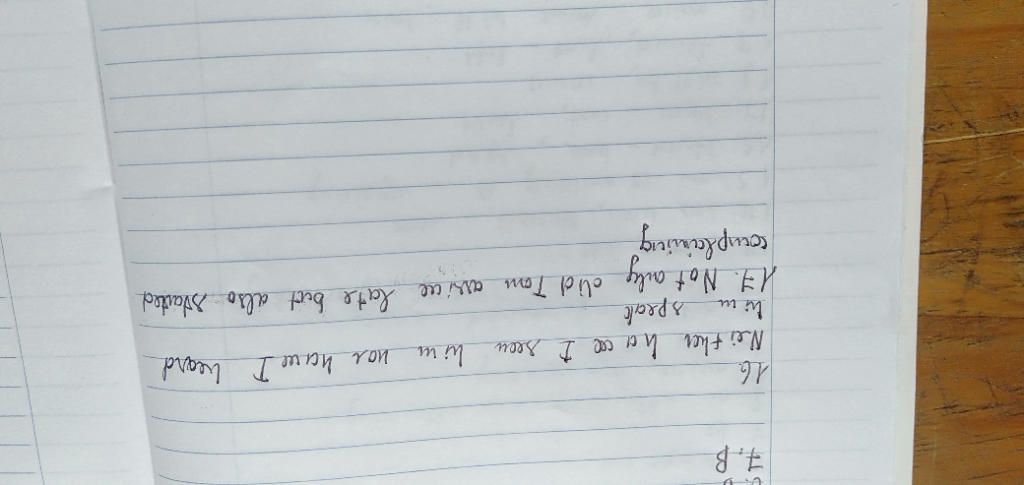 7. B
16
Neither have I seen him nor have I heard
him speak
17. Not only did Tom arrive late but also started
complaining